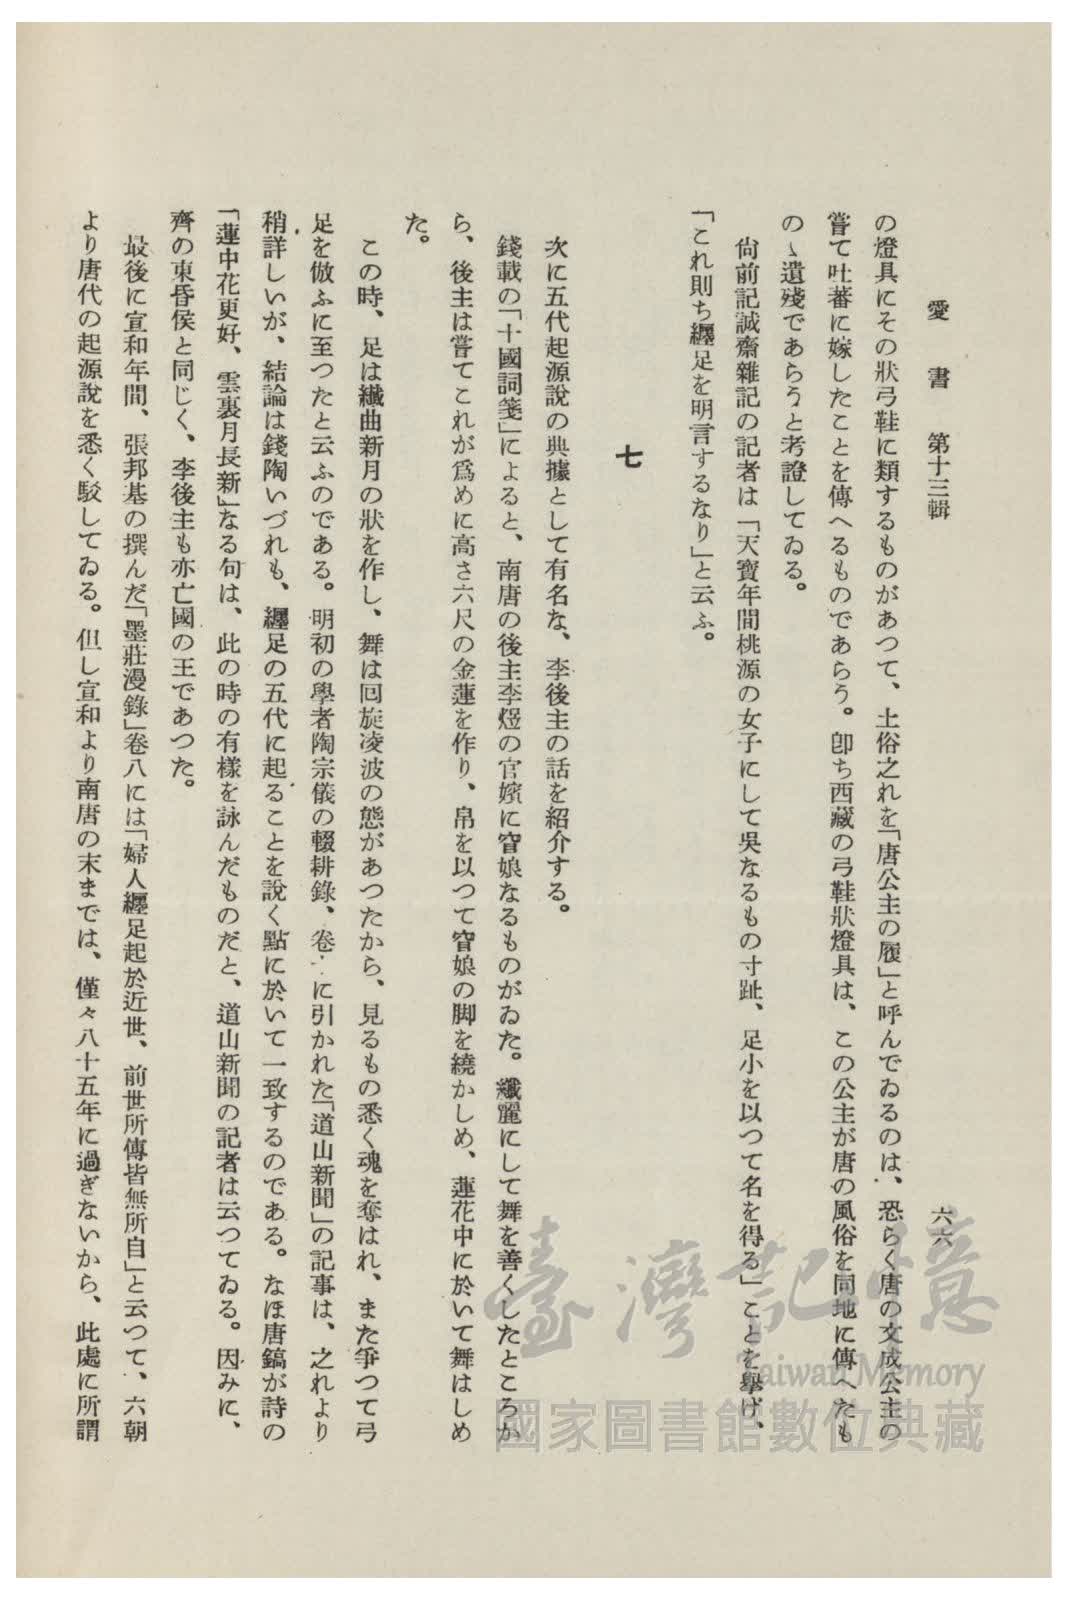 愛書 第十三輯
六六
の燈具にその狀弓鞋に類するものがあつて、土俗之れを「唐公主の履」と呼んでゐるのは、恐らく唐の文成公主の
嘗て吐蕃に嫁したことを傳へるものであらう。卽ち西藏の弓鞋狀燈具は、この公主が唐の風俗を同地に傳へたも
のゝ遺殘であらうと考證してゐる。
尙前記誠齋雜記の記者は「天寶年間桃源の女子にして吳なるもの寸趾、足小を以つて名を得る」ことを擧げ、
「これ則ち纒足を明言するなり」と云ふ。
七
次に五代起源說の典據として有名な、李後主の話を紹介する。
錢載の「十國詞箋」によると、南唐の後主李煜の官嬪に窅娘なるものがゐた。纖麗にして舞を善くしたところか
ら、後主は嘗てこれが爲めに高さ六尺の金蓮を作り、帛を以つて窅娘の脚を繞かしめ、蓮花中に於いて舞はしめ
た。
この時、足は纖曲新月の狀を作し、舞は回旋凌波の態があつたから、見るもの悉く魂を奪はれ、また爭つて弓
足を倣ふに至つたと云ふのである。明初の學者陶宗儀の輟耕錄、卷に引かれた「道山新聞」の記事は、之れより
稍詳しいが、結論は錢陶いづれも、纒足の五代に起ることを說く點に於いて一致するのである。なほ唐鎬が詩の
「蓮中花更好、雲裏月長新」なる句は、此の時の有樣を詠んだものだと、道山新聞の記者は云つてゐる。因みに、
齊の東昏侯と同じく、李後主も亦亡國の王であつた。
最後に宣和年間、張邦基の撰んだ「墨莊漫錄」卷八には「婦人纒足起於近世、前世所傳皆無所自」と云つて、六朝
より唐代の起源說を悉く駁してゐる。但し宣和より南唐の末までは、僅々八十五年に過ぎないから、此處に所謂
臺灣記憶
Taiwan Memory
國家圖書館數位典藏